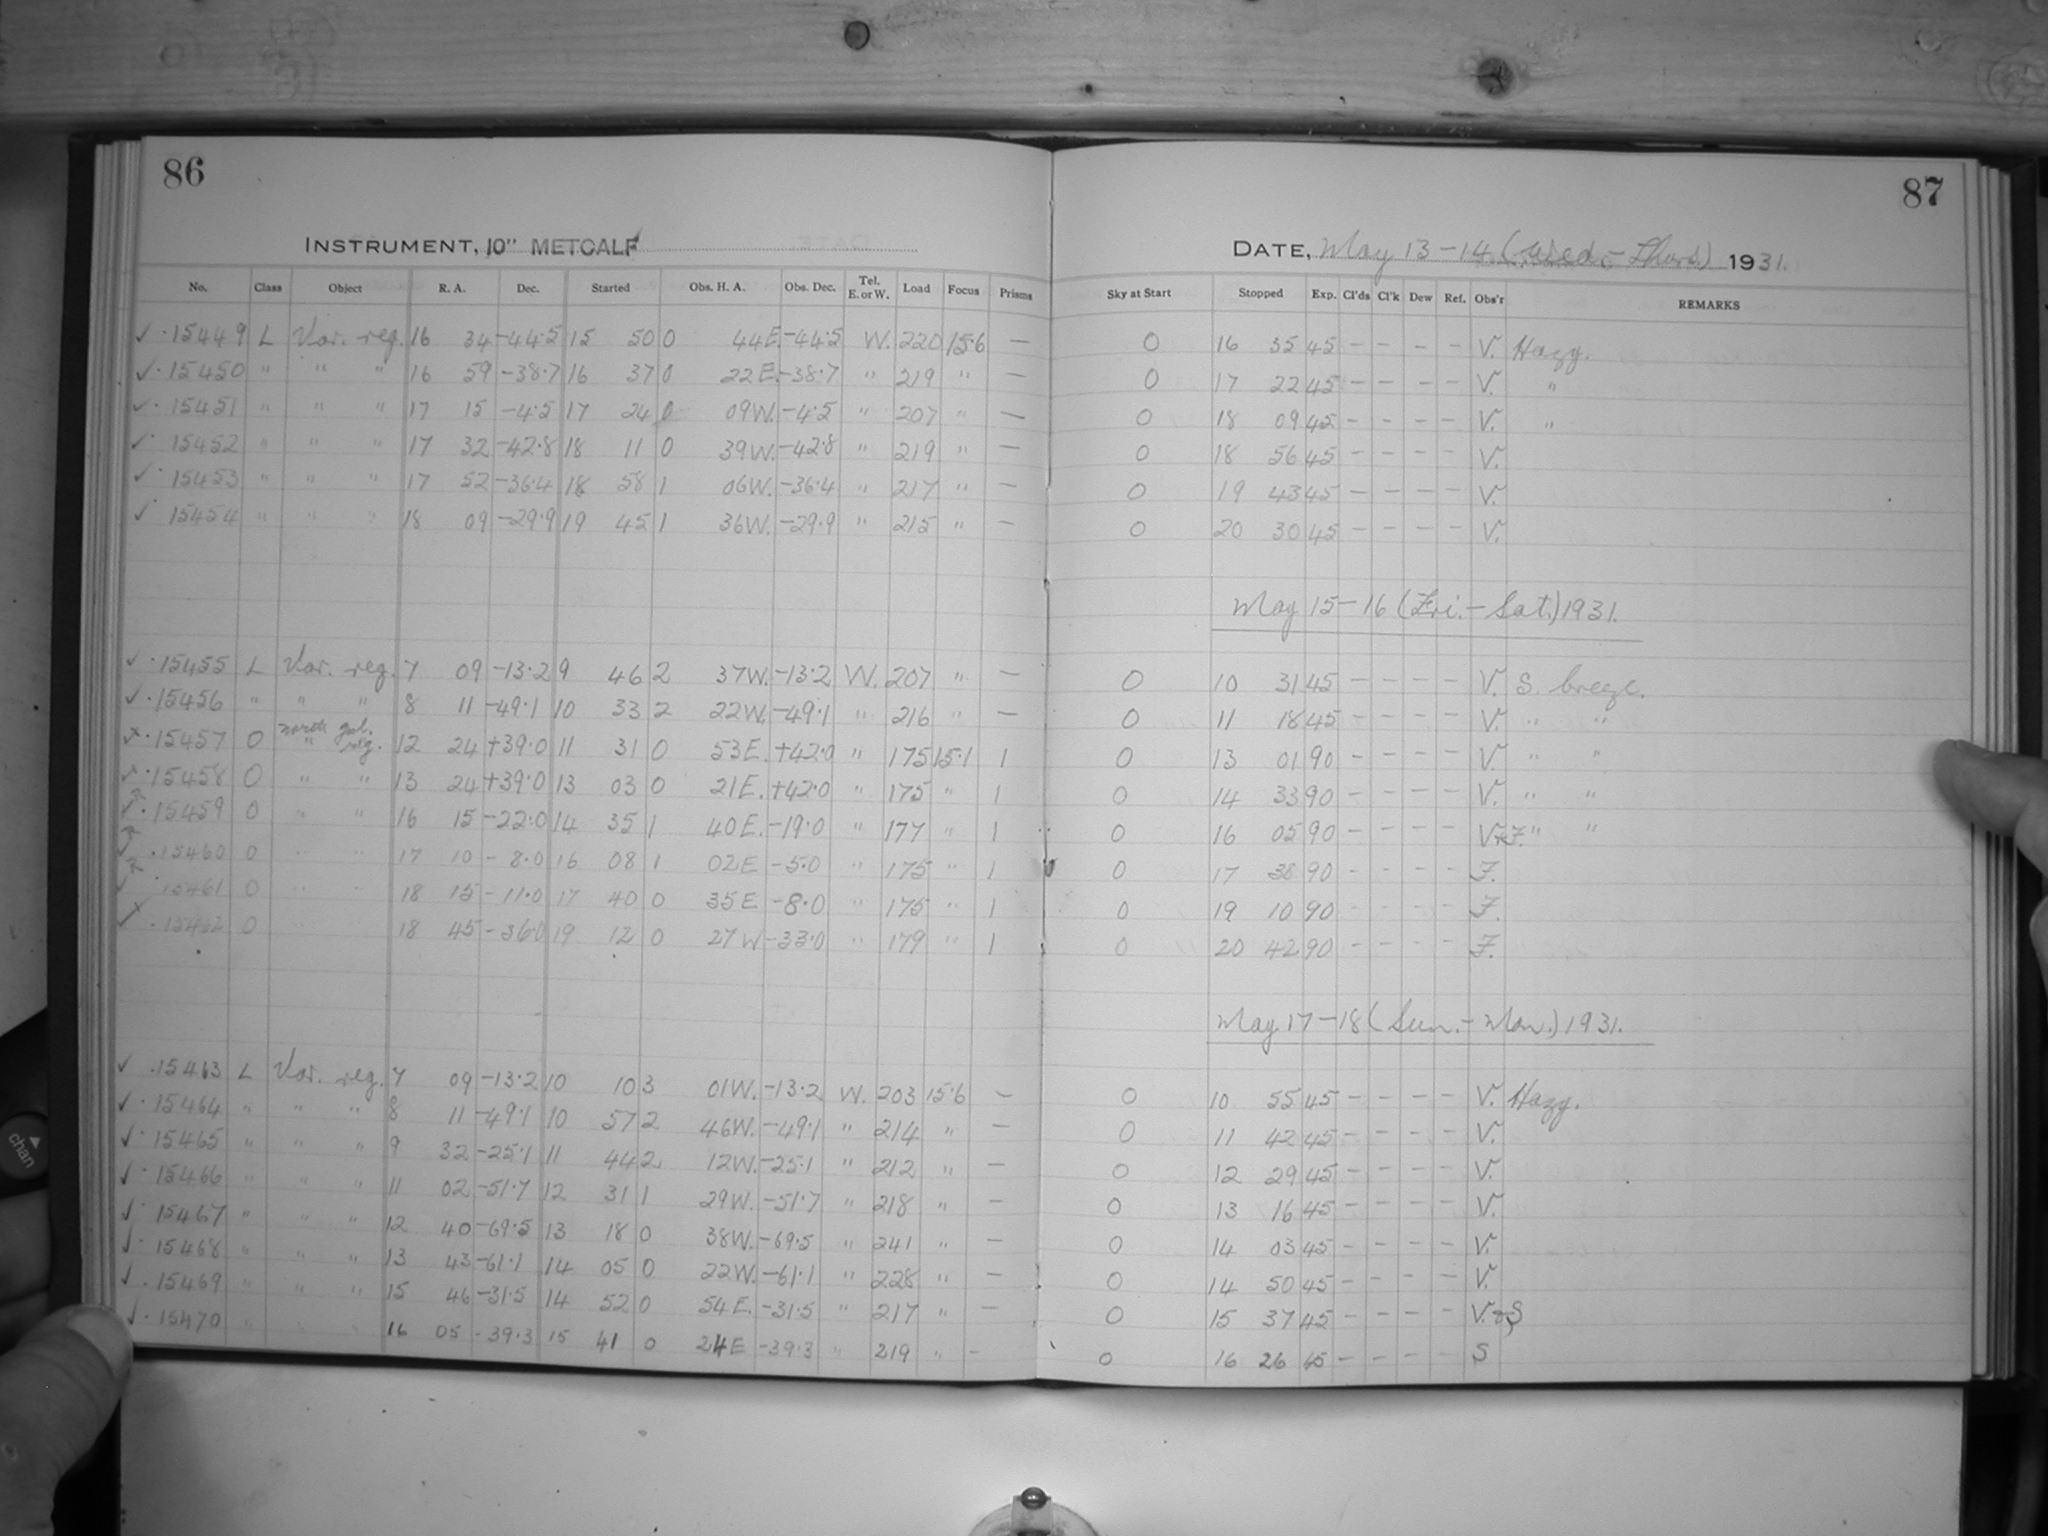 86
INSTRUMENT, 10" METCALF
No. Class Object R. A. Dec. Started Obs. H. A. Obs. Dec. Tel. E. or W. Load Focus Prisms
✓ · 15449 L Var. reg. 16 34 -44·5 15 50 0 44E. -44·5 W. 220 15·6 —
✓ · 15450 " " " 16 59 -38·7 16 37 0 22E. -38·7 " 219 " —
✓ · 15451 " " " 17 15 -4·5 17 24 0 09W. -4·5 " 207 " —
✓ · 15452 " " " 17 32 -42·8 18 11 0 39W. -42·8 " 219 " —
✓ · 15453 " " " 17 52 -36·4 18 58 1 06W. -36·4 " 217 " —
✓ · 15454 " " " 18 09 -29·9 19 45 1 36W. -29·9 " 215 " —
✓ · 15455 L Var. reg. 7 09 -13·2 9 46 2 37W. -13·2 W. 207 " —
✓ · 15456 " " " 8 11 -49·1 10 33 2 22W. -49·1 " 216 " —
· 15457 O north gal. reg. 12 24 +39·0 11 31 0 53E. +42·0 " 175 15·1 1
· 15458 O " " 13 24 +39·0 13 03 0 21E. +42·0 " 175 " 1
· 15459 O " " 16 15 -22·0 14 35 1 40E. -19·0 " 177 " 1
· 15460 O " " 17 10 -8·0 16 08 1 02E -5·0 " 175 " 1
15461 O " " 18 15 -11·0 17 40 0 35E -8·0 " 175 " 1
· 15462 O 18 45 -36·0 19 12 0 27W -33·0 " 179 " 1
✓ · 15463 L Var. reg. 7 09 -13·2 10 10 3 01W. -13·2 W. 203 15·6 —
✓ · 15464 " " " 8 11 -49·1 10 57 2 46W. -49·1 " 214 " —
✓ · 15465 " " " 9 32 -25·1 11 44 2 12W. -25·1 " 212 " —
✓ · 15466 " " " 11 02 -51·7 12 31 1 29W. -51·7 " 218 " —
✓ · 15467 " " " 12 40 -69·5 13 18 0 38W. -69·5 " 241 " —
✓ · 15468 " " " 13 43 -61·1 14 05 0 22W. -61·1 " 228 " —
✓ · 15469 " " " 15 46 -31·5 14 52 0 54E. -31·5 " 217 " —
✓ · 15470 " " " 16 05 -39·3 15 41 0 24E -39·3 " 219 " -
87
DATE, May 13-14 (Wed.-Thurs) 1931.
Sky at Start Stopped Exp. Cl'ds Cl'k Dew Ref. Obs'r REMARKS
0 16 35 45 - - - - V. Hazy.
0 17 22 45 - - - - V. "
0 18 09 45 - - - - V. "
0 18 56 45 - - - - V.
0 19 43 45 - - - - V.
0 20 30 45 - - - - V.
May 15-16 (Fri.-Sat.) 1931.
0 10 31 45 - - - - V. S. breeze.
0 11 18 45 - - - - V. " "
0 13 01 90 - - - - V. " "
0 14 33 90 - - - - V. " "
0 16 05 90 - - - - V&F. " "
0 17 38 90 - - - - F.
0 19 10 90 - - - - F.
0 20 42 90 - - - - F.
May 17-18 (Sun.-Mon.) 1931.
0 10 55 45 - - - - V. Hazy.
0 11 42 45 - - - - V.
0 12 29 45 - - - - V.
0 13 16 45 - - - - V.
0 14 03 45 - - - - V.
0 14 50 45 - - - - V.
0 15 37 45 - - - - V.&S
0 16 26 45 - - - - S
chan